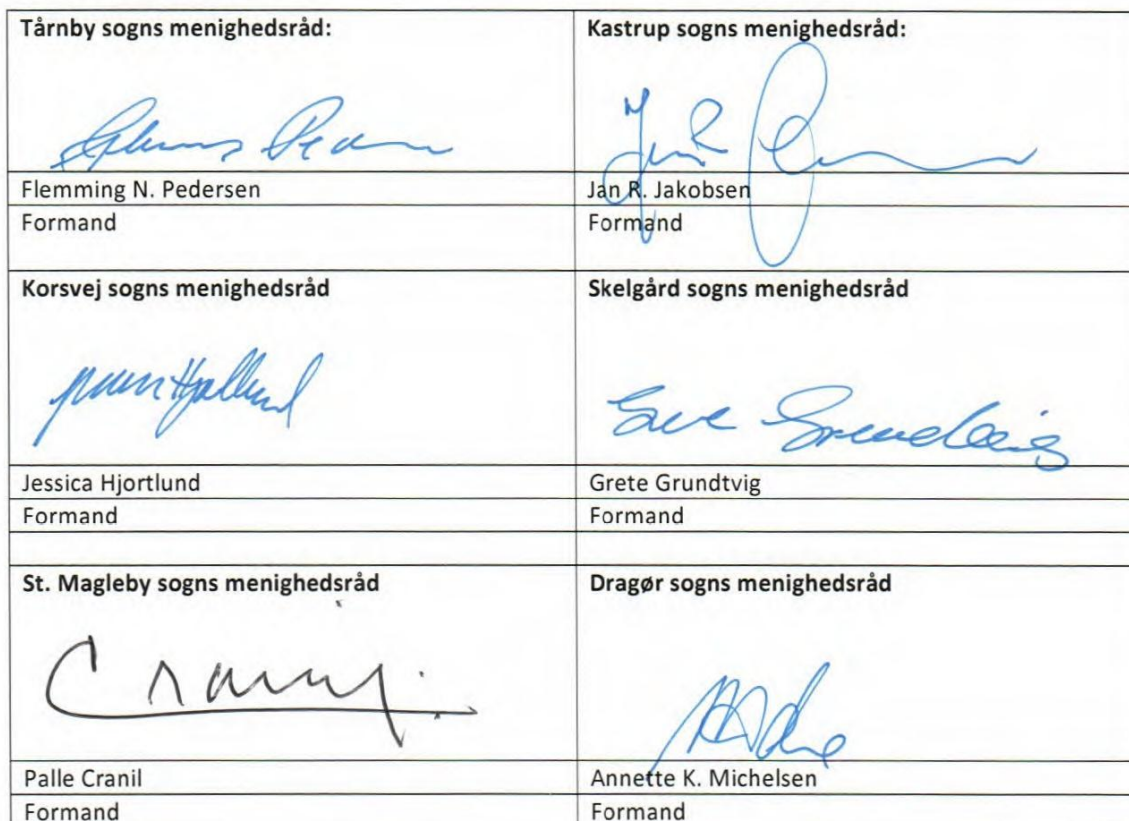 Tårnby sogns menighedsråd:
Kastrup sogns menighedsråd:
Flemming N. Pedersen
Jan R. Jakobsen
Formand
Formand
Korsvej sogns menighedsråd
Skelgård sogns menighedsråd
Jessica Hjortlund
Grete Grundtvig
Formand
Formand
St. Magleby sogns menighedsråd
Dragør sogns menighedsråd
Palle Cranil
Annette K. Michelsen
Formand
Formand